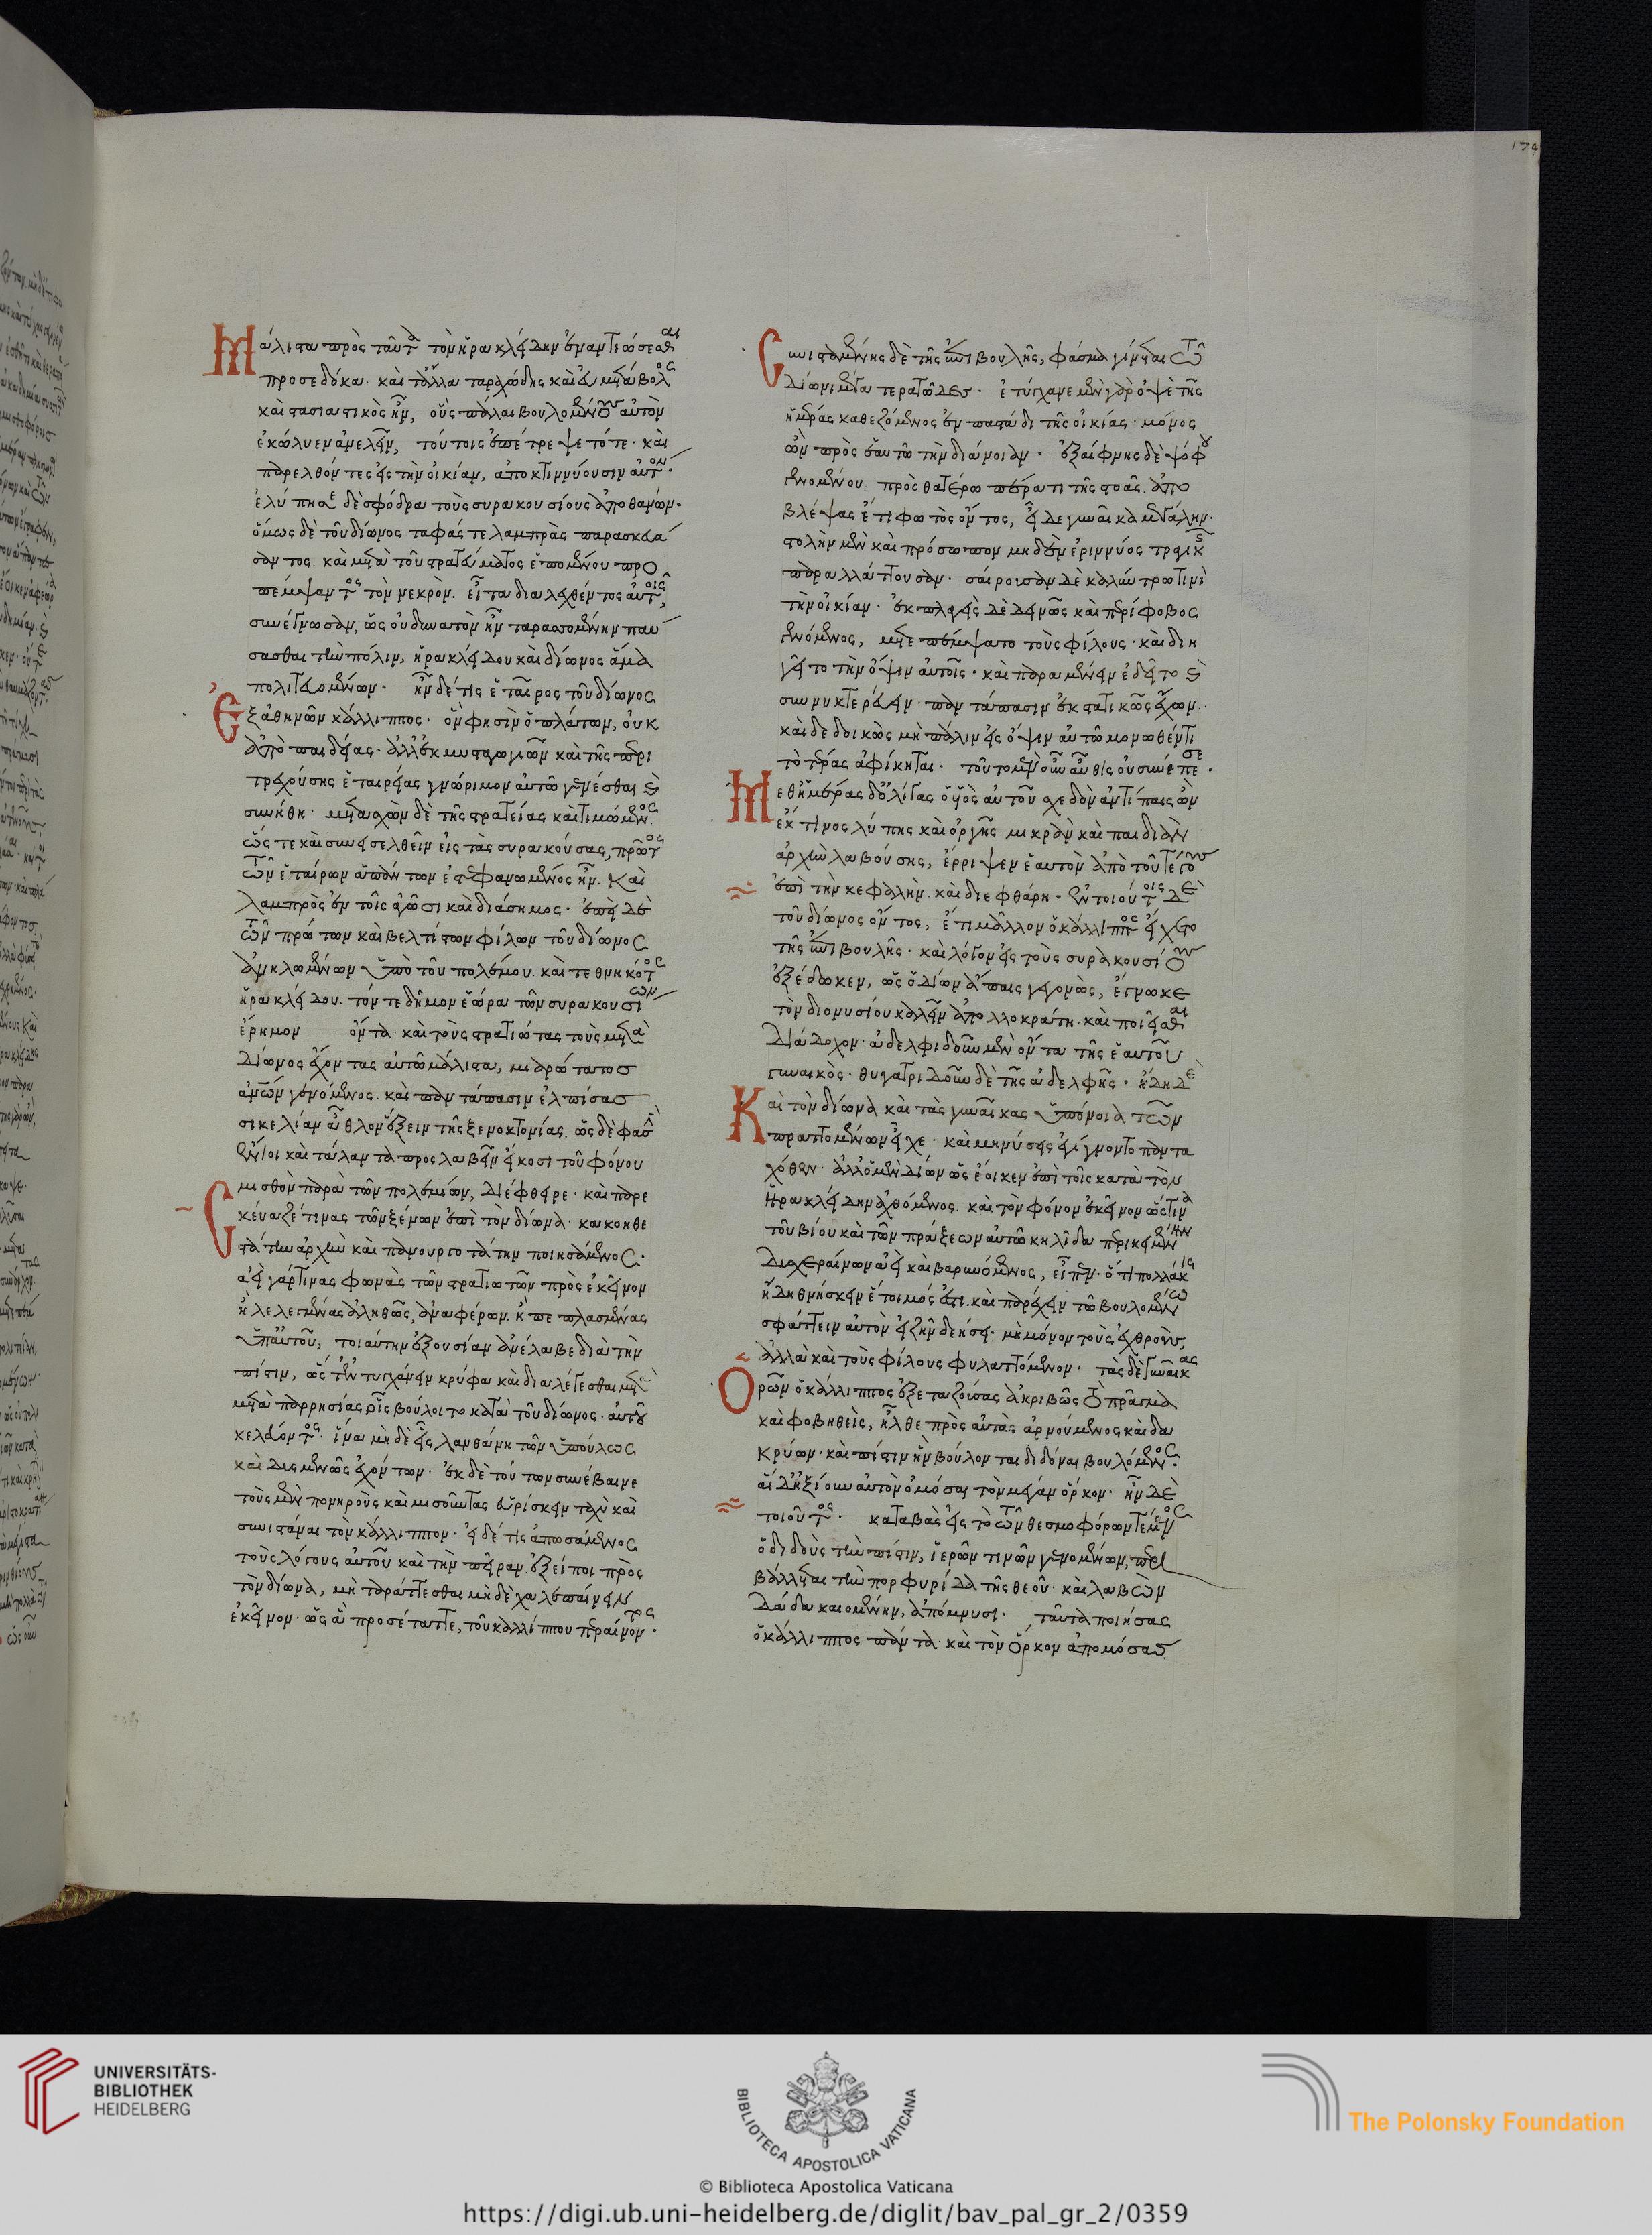 Μάλιστα πρὸς ταῦτα τὸν ἡρακλείδην ἐναντιώσεσθαι
προσεδόκα· καὶ τἄλλα ταραχώδης καὶ εὐμετάβολος
καὶ στασιαστικὸς ἦν, οὓς πάλαι βουλομένους αὐτὸν
ἐκώλυεν ἀνελεῖν, τούτοις ἐπέτρεψε τότε· καὶ
παρελθόντες εἰς τὴν οἰκίαν, ἀποκτιννύουσιν αὐτόν·
ἐλύπησε δὲ σφόδρα τοὺς συρακουσίους ἀποθανών·
ὅμως δὲ τοῦ δίωνος ταφάς τε λαμπρὰς παρασκευά
σαντος. καὶ μετὰ τοῦ στρατεύματος ἑπομένου προ
πέμψαντος τὸν νεκρόν. εἶτα διαλεχθέντος αὐτοῖς,
συνέγνωσαν, ὡς οὐ δυνατὸν ἦν ταραττομένην παύ
σασθαι τὴν πόλιν, ἡρακλείδου καὶ δίωνος ἅμα
πολιτευομένων· ἦν δέ τις ἑταῖρος τοῦ δίωνος
Ἐξ ἀθηνῶν κάλλιππος· ὅν φησὶν ὁ πλάτων, οὐκ
ἀπὸ παιδείας· ἀλλ' ἐκ μυσταγωγιῶν καὶ τῆς περι
τρεχούσης ἑταιρείας γνώριμον αὐτῷ γενέσθαι καὶ
συνήθη· μετασχὼν δὲ τῆς στρατείας καὶ τιμώμενος.
ὥς τε καὶ συνεισελθεῖν εἰς τὰς συρακούσας, πρῶτος
τῶν ἑταίρων ἁπάντων ἐστεφανωμένος ἦν. Καὶ
λαμπρὸς ἐν τοῖς ἀγῶσι καὶ διάσημος· ἐπεὶ δὲ
τῶν πρώτων καὶ βελτίστων φίλων τοῦ δίωνος
ἀνηλωμένων ὑπὸ τοῦ πολέμου. καὶ τεθνηκότος
ἡρακλείδου. τόν τε δῆμον ἑώρα τῶν συρακουσίων
ἔρημον ὄντα· καὶ τοὺς στρατιώτας τοὺς μετὰ
δίωνος ἔχοντας αὐτῷ μάλιστα, μιαρώτατος
ἀνθρώπων γενόμενος. καὶ παντάπασιν ἐλπίσας
σικελίαν ἆθλον ἕξειν τῆς ξενοκτονίας. ὡς δέ φασὶν
ἔνιοι καὶ τάλαντα προσλαβεῖν εἴκοσι τοῦ φόνου
μισθὸν παρὰ τῶν πολεμίων, διέφθειρε· καὶ παρε
Σκεύαζέ τινας τῶν ξένων ἐπὶ τὸν δίωνα· κακοηθε
στάτην ἀρχὴν καὶ πανουργοτάτην ποιησάμενος·
ἀεὶ γάρ τινας φωνὰς τῶν στρατιωτῶν πρὸς ἐκεῖνον
ἢ λελεγμένας ἀληθῶς, ἀναφέρων. ἢ πεπλασμένας
ὑπ' αὐτοῦ, τοιαύτην ἐξουσίαν ἀνέλαβε διὰ τὴν
πίστιν, ὥστ' ἐντυγχάνειν κρύφα καὶ διαλέγεσθαι μετὰ
μετὰ παρρησίας οἷς βούλοιτο κατὰ τοῦ δίωνος· αὐτοῦ
κελεύοντος· ἵνα μηδεὶς λανθάνῃ τῶν ὑπούλως
καὶ δυσμενῶς ἐχόντων· ἐκ δὲ τούτων συνέβαινε
τοὺς μὲν πονηροὺς καὶ νοσοῦντας εὑρίσκειν ταχὺ καὶ
συνιστάναι τὸν κάλλιππον· εἰ δέ τις ἀπωσάμενος
τοὺς λόγους αὐτοῦ καὶ τὴν πεῖραν ἐξείποι πρὸς
τὸν δίωνα, μὴ ταράττεσθαι μηδὲ χαλεπαίνειν
ἐκεῖνον· ὡς ἃ προσέταττε, τοῦ καλλίππου περαίνοντος·
Συνισταμένης δὲ τῆς ἐπιβουλῆς, φάσμα γίνεται τῷ
δίωνι μέγα τερατῶδες· ἐτύγχανε μὲν γὰρ ὀψὲ τῆς
ἡμέρας καθεζόμενος ἐν παστάδι τῆς οἰκίας· μόνος
ὢν πρὸς ἑαυτῷ τὴν διάνοιαν· ἐξαίφνης δὲ ψόφου
γενομένου πρὸς θατέρῳ πέρατι τῆς στοᾶς. ἀπο
βλέψας ἔτι φωτὸς ὄντος, εἶδε γυναῖκα μεγάλην·
στολὴν μὲν καὶ πρόσωπον μηδὲν ἐριννύος τραγικῆς
παραλλάττουσαν· σαίρουσαν δὲ καλλύντρῳ τινὶ
τὴν οἰκίαν· ἐκπλαγεὶς δὲ δεινῶς καὶ περίφοβος
γενόμενος, μετεπέμψατο τοὺς φίλους· καὶ διη
γεῖτο τὴν ὄψιν αὐτοῖς· καὶ παραμένειν ἐδεῖτο καὶ
συννυκτερεύειν· παντάπασιν ἐκστατικῶς ἔχων··
καὶ δεδοικὼς μὴ πάλιν εἰς ὄψιν αὐτῷ μονωθέντι
τὸ τέρας ἀφίκηται· τοῦτο μὲν οὖν αὖθις οὐ συνέπεσε·
Μεθ' ἡμέρας δ' ὀλίγας ὁ υἱὸς αὐτοῦ σχεδὸν ἀντίπαις ὢν
ἐκ τινος λύπης καὶ ὀργῆς· μικρὰν καὶ παιδιὰν
ἀρχὴν λαβούσης, ἔρριψεν ἑαυτὸν ἀπὸ τοῦ τέγους
ἐπὶ τὴν κεφαλήν· καὶ διεφθάρη· ἐν τοιούτοις δὲ
τοῦ δίωνος ὄντος, ἔτι μᾶλλον ὁ κάλλιππος εἴχετο
τῆς ἐπιβουλῆς· καὶ λόγον εἰς τοὺς συρακουσίους
ἐξέδωκεν, ὡς ὁ δίων ἄπαις γεγονὼς, ἔγνωκε
τὸν διονυσίου καλεῖν ἀπολλοκράτη· καὶ ποιεῖσθαι
διάδοχον· ἀδελφιδοῦν μὲν ὄντα τῆς ἑαυτοῦ
γυναικὸς· θυγατριδοῦν δὲ τῆς ἀδελφῆς· ἤδη δὲ
Καὶ τὸν δίωνα καὶ τὰς γυναῖκας ὑπόνοια τῶν
πραττομένων εἶχε· καὶ μηνύσεις ἐγίγνοντο παντα
χόθεν· ἀλλ' ὁ μὲν δίων ὡς ἔοικεν ἐπὶ τοῖς κατὰ τὸν
Ἡρακλείδην ἀχθόμενος· καὶ τὸν φόνον ἐκεῖνον ὥς τινα
τοῦ βίου καὶ τῶν πράξεων αὐτῷ κηλῖδα περικειμένην
δυσχεραίνων ἀεὶ καὶ βαρυνόμενος, εἶπεν· ὅτι πολλάκις
ἤδη θνήσκειν ἕτοιμός ἐστι· καὶ παρέχειν τῷ βουλομένῳ
σφάττειν αὐτὸν εἰ ζῆν δεήσει· μὴ μόνον τοὺς ἐχθροὺς,
ἀλλὰ καὶ τοὺς φίλους φυλαττόμενον· τὰς δὲ γυναῖκας
Ὁρῶν ὁ κάλλιππος ἐξεταζούσας ἀκριβῶς τὸ πρᾶγμα
καὶ φοβηθεὶς, ἦλθε πρὸς αὐτὰς ἀρνούμενος καὶ δα
κρύων· καὶ πίστιν ἣν βούλονται διδόναι βουλόμενος·
αἱ δ' ἠξίουν αὐτὸν ὀμόσαι τὸν μέγαν ὅρκον· ἦν δὲ
τοιοῦτος· καταβὰς εἰς τὸ τῶν θεσμοφόρων τέμενος
ὁ διδοὺς τὴν πίστιν, ἱερῶν τινῶν γενομένων, περι
βάλλεται τὴν πορφυρίδα τῆς θεοῦ· καὶ λαβὼν
δᾷδα καιομένην, ἀπόμνυσι· ταῦτα ποιήσας
ὁ κάλλιππος πάντα· καὶ τὸν ὅρκον ἀπομόσας
UNIVERSITÄTS-
BIBLIOTHEK
HEIDELBERG
BIBLIOTECA APOSTOLICA VATICANA
The Polonsky Foundation
© Biblioteca Apostolica Vaticana
https://digi.ub.uni-heidelberg.de/diglit/bav_pal_gr_2/0359